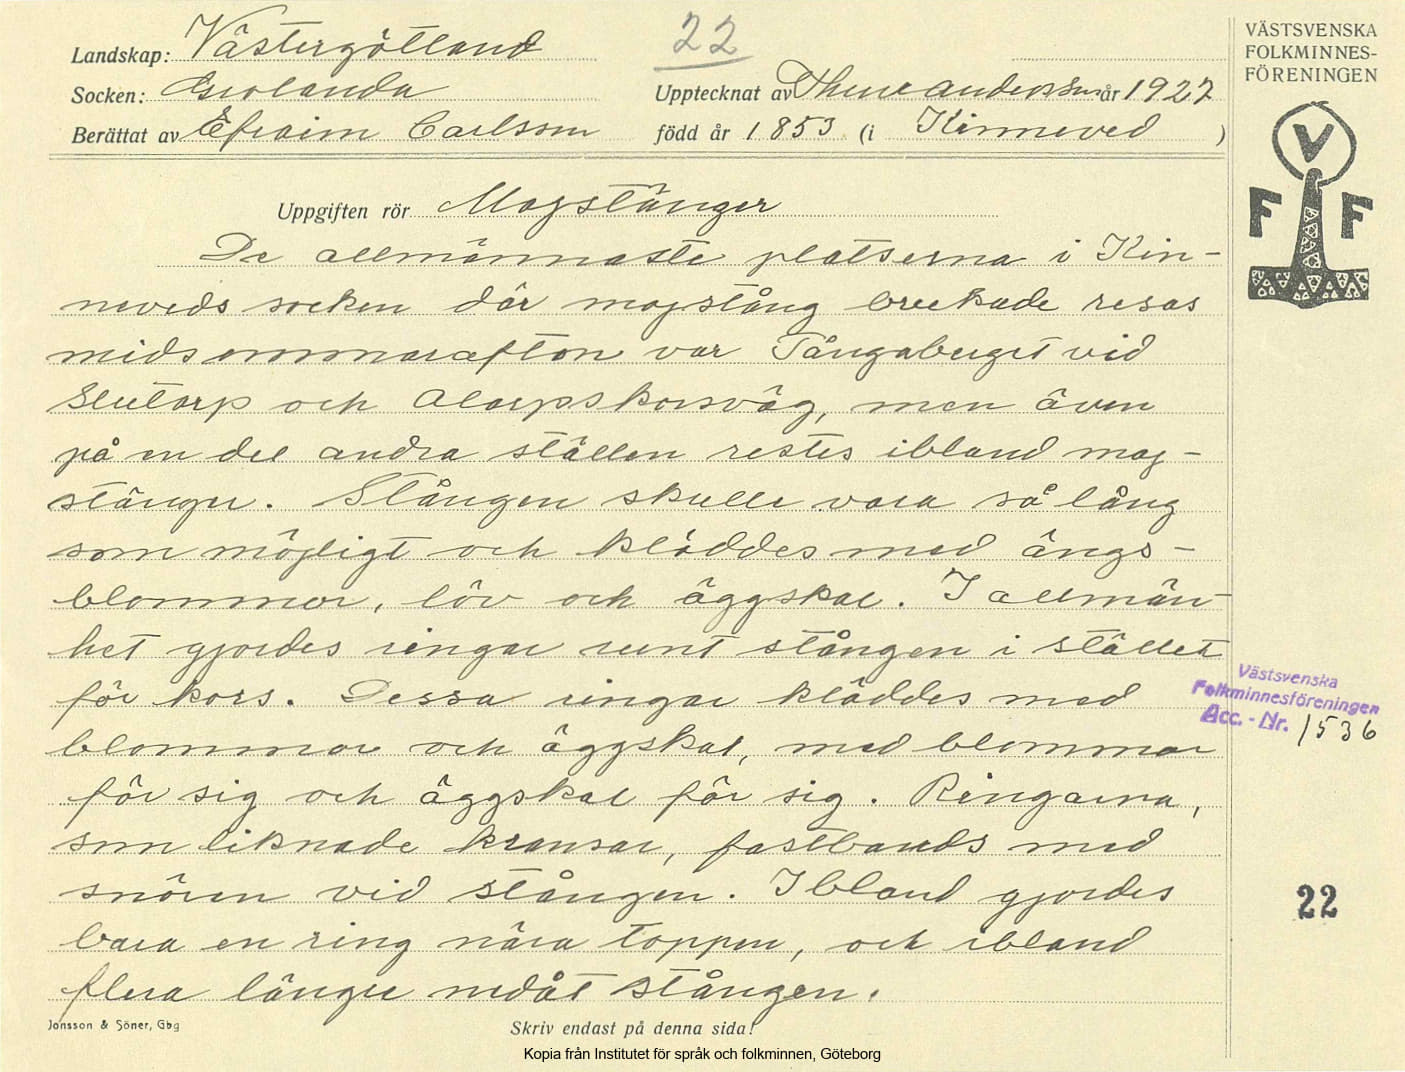 22
VÄSTSVENSKA
FOLKMINNES-
FÖRENINGEN
Landskap: Västergötland
Socken: Grolanda
Upptecknat av Thure Andersson år 1927
Berättat av Efraim Carlsson född år 1853 (i Kinneved )
V
F F
Uppgiften rör Majstänger
De allmännaste platserna i Kin-
neveds socken där majstång brukade resas
midsommarafton var Tångaberget vid
Slutarp och Alarpskorsväg, men även
på en del andra ställen restes ibland maj-
stänger. Stången skulle vara så lång
som möjligt och kläddes med ängs-
blommor, löv och äggskal. I allmän-
het gjordes ringar runt stången i stället
för kors. Dessa ringar kläddes med
blommor och äggskal, med blommor
för sig och äggskal för sig. Ringarna,
som liknade kransar, fastbands med
snören vid stången. Ibland gjordes
bara en ring nära toppen, och ibland
flera längre nedåt stången.
Västsvenska
Folkminnesföreningen
Acc. - Nr. 1536
22
Jonsson & Söner, Gbg
Skriv endast på denna sida!
Kopia från Institutet för språk och folkminnen, Göteborg